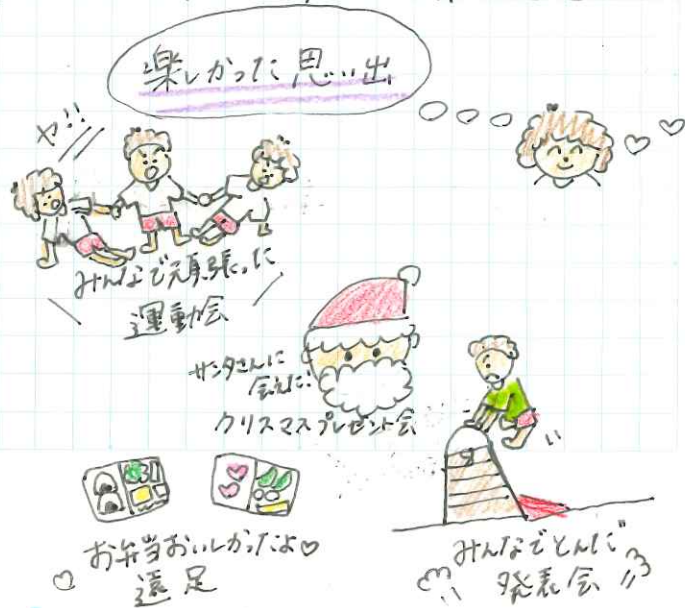 楽しかった思い出
ヤ!!
みんなで頑張った
運動会
サンタさんに
会えた!
クリスマスプレゼント会
お弁当おいしかったよ♡
遠足
みんなでとんだ
発表会